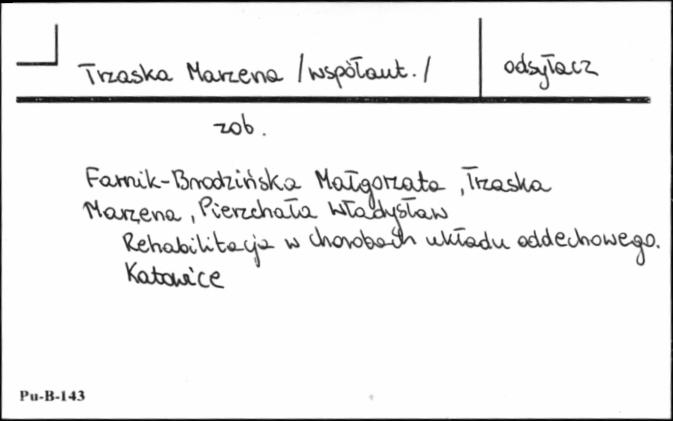 Trzaska Marzena /współaut./
odsyłacz
zob.
Farnik-Brodzińska Małgorzata, Trzaska
Marzena, Pierzchała Władysław
Rehabilitacja w chorobach układu oddechowego.
Katowice
Pu-B-143